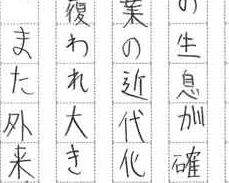 の生息が確
業の近代化
覆われ大き
また外来